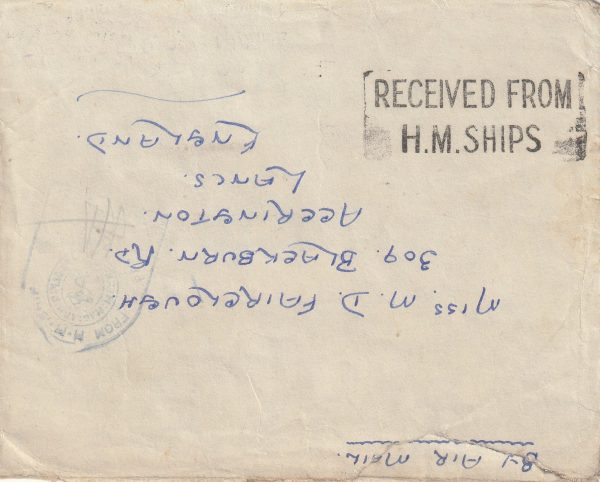 RECEIVED FROM
H.M. SHIPS
By AIR MAIL.
MISS. M. D. FAIRCLOUGH
309. BLACKBURN. RD.
ACCRINGTON.
LANCS.
ENGLAND.
FROM H.M. SHIP